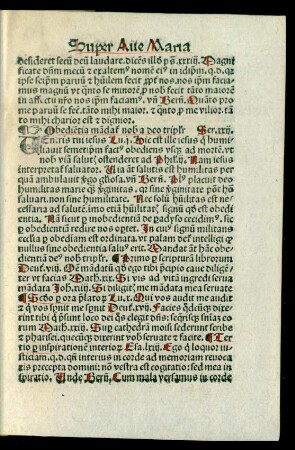 Super Aue Maria
desideret secũ deũ laudare. dicẽs illḋ pͦs. xxxiij. Magni
ficate dñm mecũ ⁊ exaltemꝰ nomẽ eiꝰ in idip̃m. q. d. q̃
ipse seip̃m paruũ ⁊ hũilem fecit xp̃s nos, nos ip̃m facia-
mus magnũ vt q̃nto se minorẽ nob fecit tãto maiorẽ
in affectu nr̃o nos ip̃m faciamꝰ. vñ Berñ. Quãto pro
me paruũ se fecit: tãto mihi maior. ⁊ q̃nto me vilior. tã
to mihi charior est ⁊ dignior.
Obedietia mãdat nob a deo tripłr Ser. xxij.
ris tui iesus Lu. j. Hic est ille iesus q̃ humi
liauit semetip̃m factꝰ obediens vsq̃ ad mortẽ. vt
nob viã salutꝭ, ostenderet ad Phil. ij. Nam iesus
interp̃tat saluator. Uia ãt salutis est humilitas per
quã ambulauit fx̃ gl̃iosa. vñ Berñ. Placuit deo
humilitas marie virginitas. qr̃ sine virginitate põt hõ
saluari. non sine humilitate. Nec solũ hũilitas est ne-
cessaria ad salutẽ. imo etiã hũilitatꝭ, signũ qd est obediẽ
tia. Nã sicut nobedientia de padyso eiecidimꝰ, sic
obedientiã redire nos optet. In cuiꝰ signũ militans
ecclesia in obediam est ordinata. vt palam det intelligi q̃
nullus sine obedientia saluꝰ erit. Mandat ãt hãc obe-
dientiã deꝰ nob triplr. Primo scripturã librorum
Deut. viij. Om̃e mãdatũ qd ego tibi p̃cipio caue dilige-
ter vt facias Math. xix. Si vis ad vitã ingredi serua
mãdata Joh. xiiij. Si diligitis me mãdata mea seruate
Scdõ ora p̃latoꝝ Lu. x. Qui vos audit me audit
⁊ q̃ vos spnit me spnit Deut. xvij. Facies qd̃cũq̃ dixe-
rint tibi q̃ p̃sunt loco dei qs̃ elegit dñs: seq̃risq̃ sniaꝫ eorum
Math. xxiij. Sup cathedrã moisi sederunt scribe
⁊ pharisei. quecũq̃ dixerint vob seruate ⁊ facite. Ter
tio inspirationẽ interioreꝫ Esa. lxiij. Ego q̃ loquor iu-
sticiam. q. d. qñ interius in corde ad memoriam reuoca
ris precepta domini: nõ vestra est cogitatio: sed mea in-
spiratio. Unde Berñ. Cum mala versamus in corde